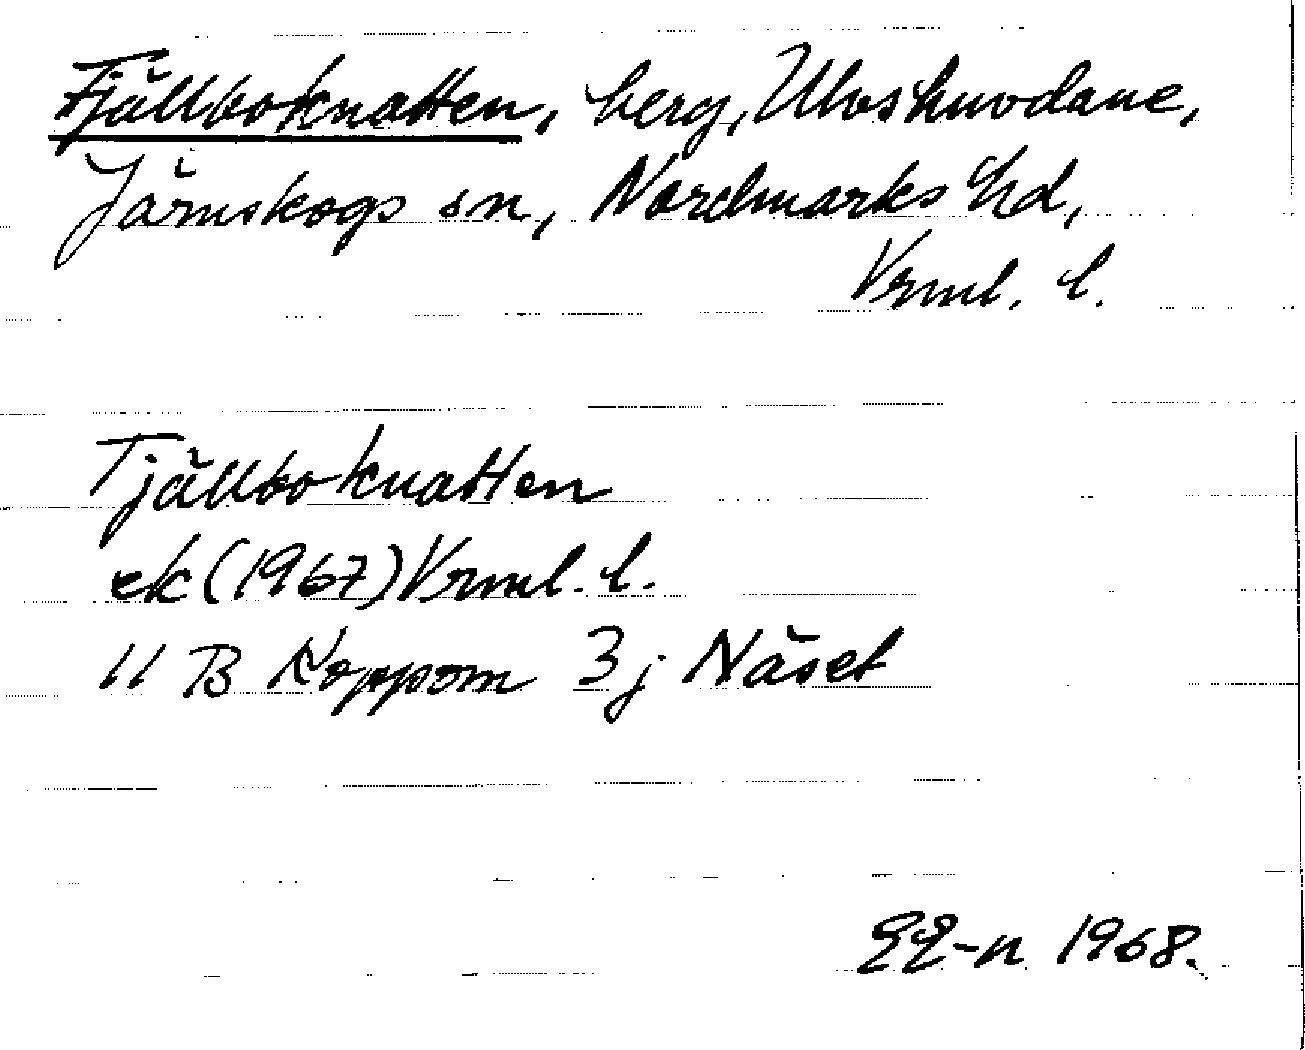 Fjällboknatten, berg,
Järnskogs sn, Nordmarks hd,
Vrml. l.
Tjällboknatten
ek (1967) Vrml. l.
11 B Koppom 3 j Näset
EE-n 1968.